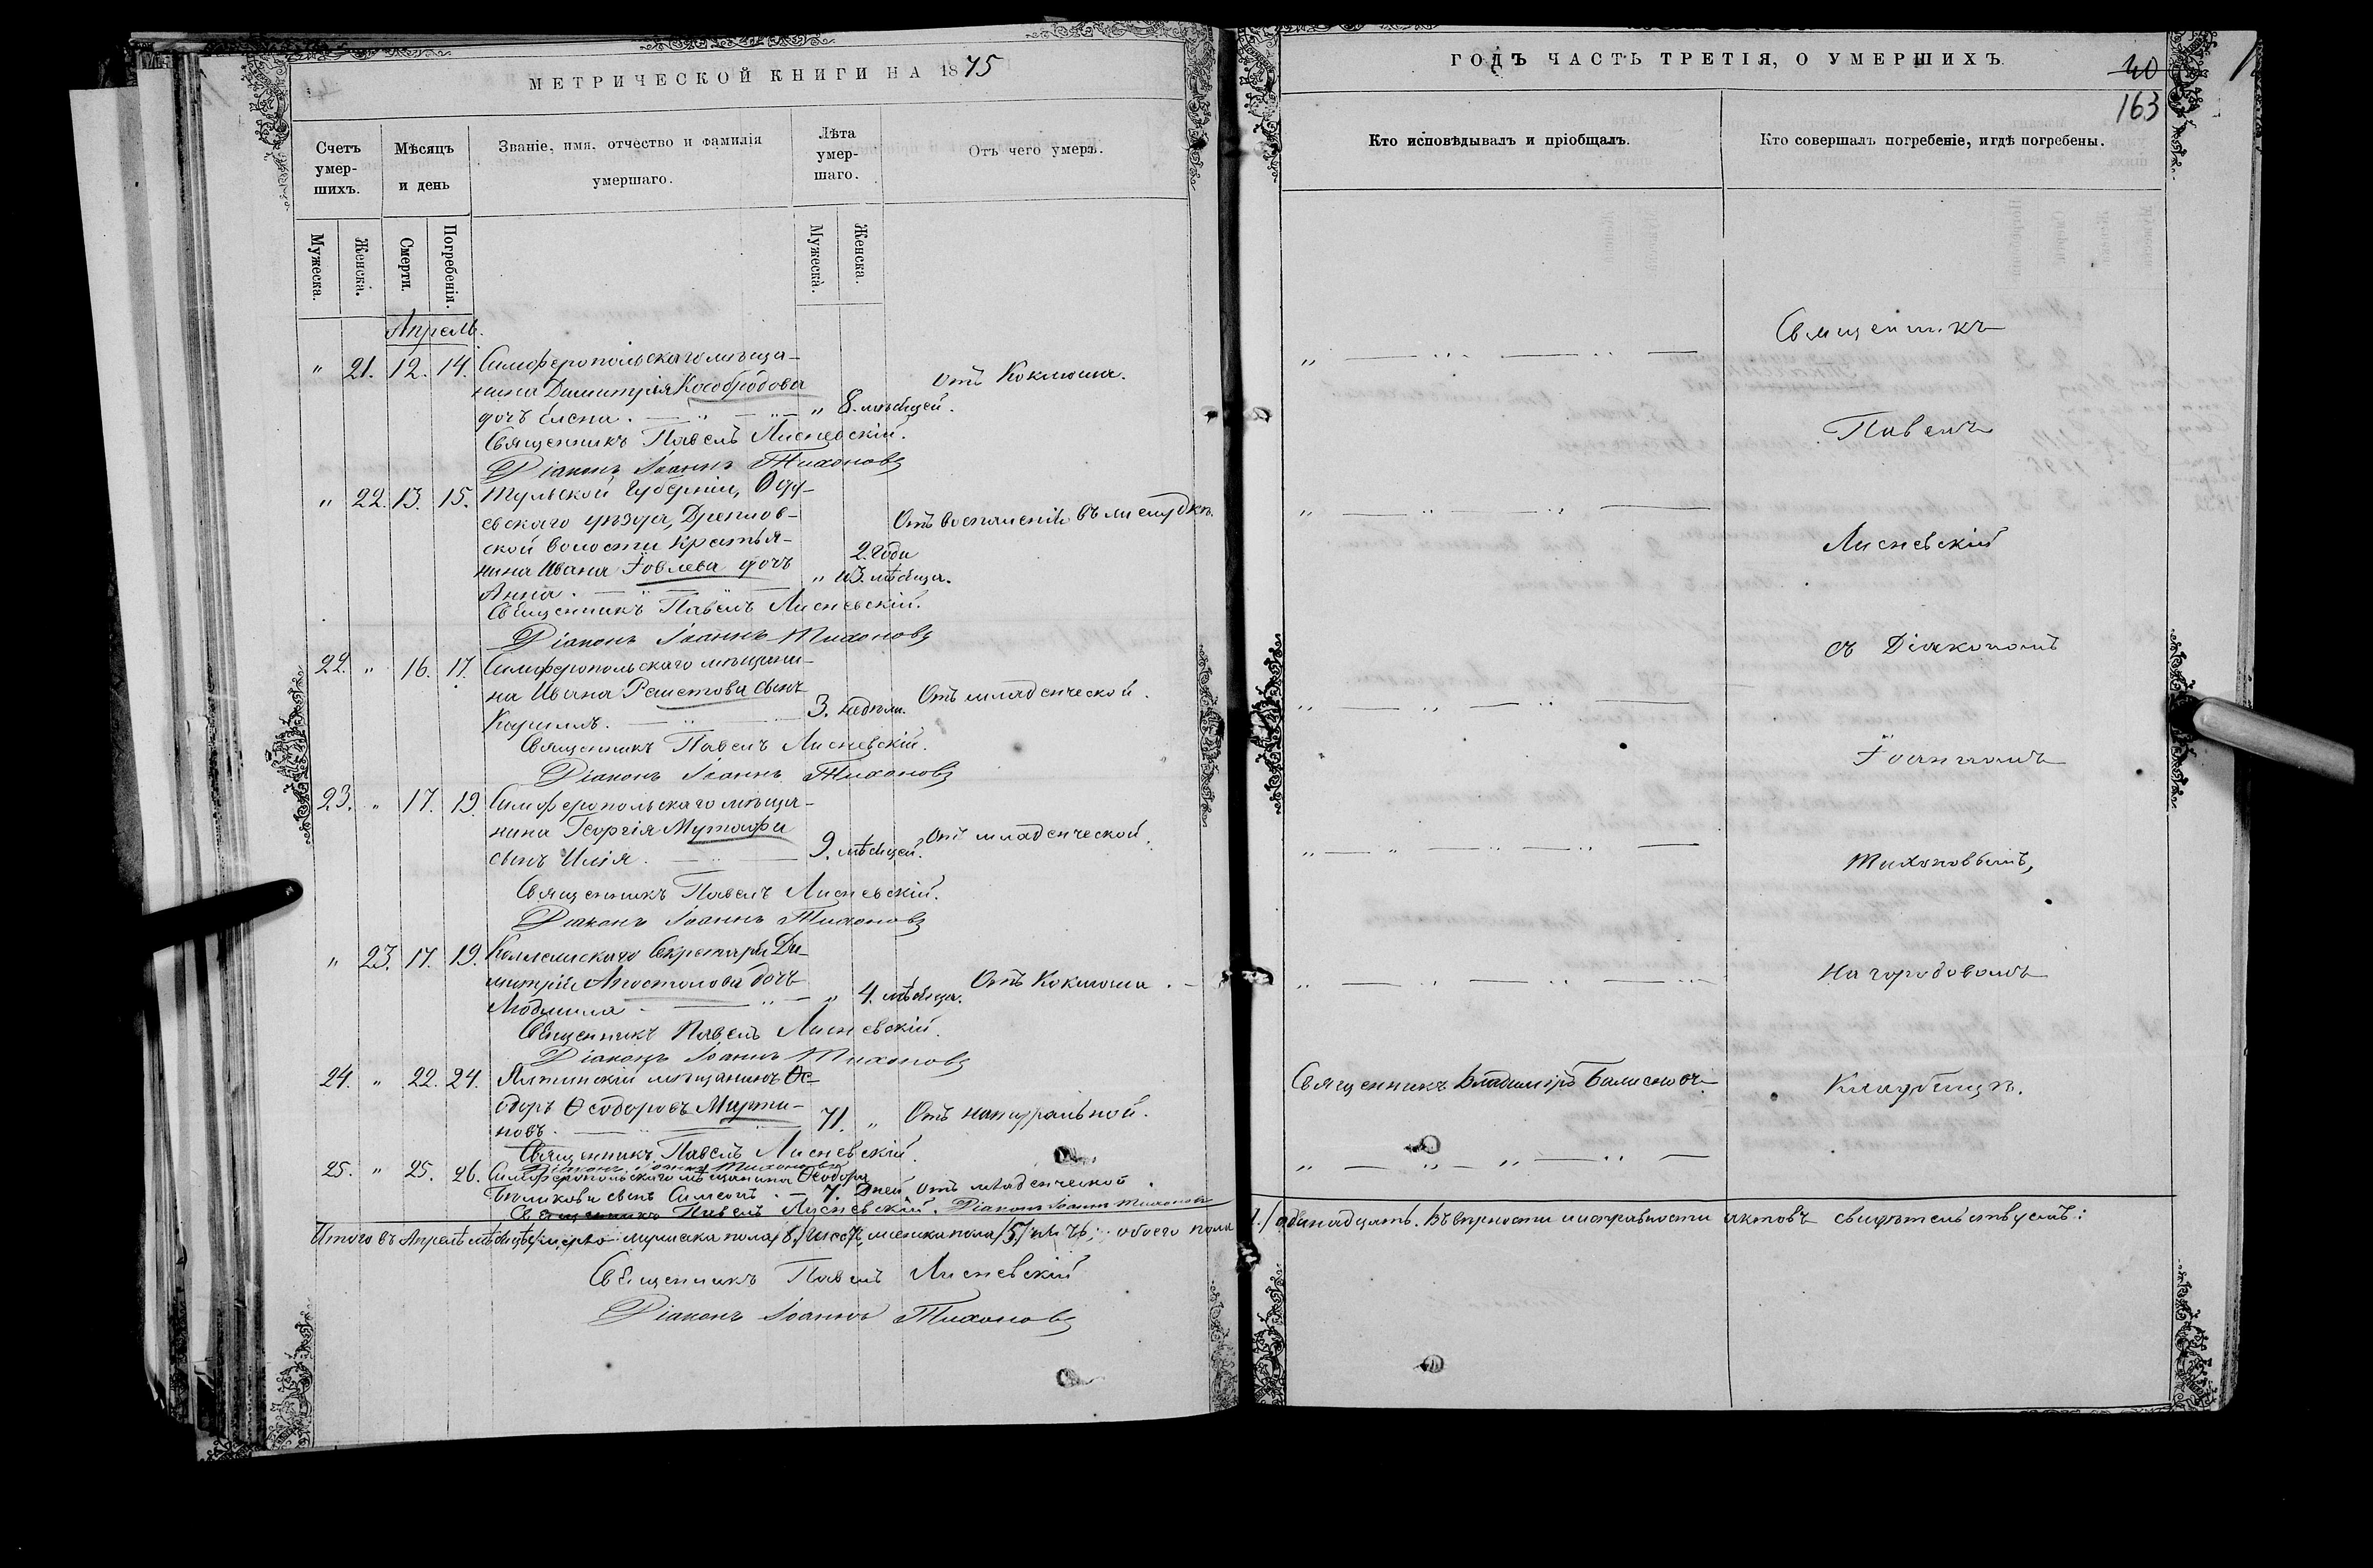 МЕТРИЧЕСКОЙ КНИГИ НА 1875
Счетъ умер-шихъ.
Мѣсяцъ и день
Званіе, имя, отчество и фамилія умершаго.
Лѣта умер-шаго.
Отъ чего умеръ.
Мужеска.
Женска.
Смерти.
Погребенія.
Мужеска.
Женска.
Апрель.
" 21. 12. 14. Симферопольскаго мѣща-
нина Димитрія Кособродова
дочь Елена. " 8. мѣсяцей. Отъ Коклюша.
Священникъ Павелъ Лисневскій.
Діаконъ Іоаннъ Тихоновъ
" 22. 13. 15. Тульской Губерніи, Оду-
евскаго уѣзда,
ской волости крестья-
нина Ивана Іовлева дочь
Анна. " 2. года и 3. мѣсяца. Отъ воспаленія въ желудкѣ.
Священникъ Павелъ Лисневскій.
Діаконъ Іоаннъ Тихоновъ
22. " 16. 17. Симферопольскаго мѣщани-
на Ивана Решетова сынъ
Кириллъ. 3. недѣли. Отъ младенческой.
Священникъ Павелъ Лисневскій.
Діаконъ Іоаннъ Тихоновъ
23. " 17. 19. Симферопольскаго мѣща-
нина Георгія Мутафи
сынъ Илія. 9. мѣсяцей. Отъ младенческой.
Священникъ Павелъ Лисневскій.
Діаконъ Іоаннъ Тихоновъ
" 23. 17. 19. Коллежскаго Секретаря Ди-
митрія Апостолова дочь
Людмила. " 4. мѣсяца. Отъ Коклюша.
Священникъ Павелъ Лисневскій.
Діаконъ Іоаннъ Тихоновъ
24. " 22. 24. Ялтинскій мѣщанинъ Ѳе-
одоръ Ѳеодоровъ Марти-
новъ. 71. " Отъ натуральной.
Священникъ Павелъ Лисневскій.
Діаконъ Іоаннъ Тихоновъ
25. " 25. 26. Симферопольскаго мѣщанина Ѳеодора
сынъ Симеонъ. 7. дней. Отъ младенческой.
Священникъ Павелъ Лисневскій. Діаконъ Іоаннъ Тихоновъ
Итого въ Апрелѣ мѣсяцѣ умерло мужеска пола /6./ шесть, женска пола /5./ пять; обоего пола
Священникъ Павелъ Лисневскій
Діаконъ Іоаннъ Тихоновъ
ГОДЪ ЧАСТЬ ТРЕТІЯ, О УМЕРШИХЪ.
40
163
Кто исповѣдывалъ и пріобщалъ.
Кто совершалъ погребеніе, и гдѣ погребены.
Священникъ
Павелъ
Лисневскій
съ Діакономъ
Іоанномъ
Тихоновымъ,
на городовомъ
Священникъ Владиміръ
Кладбищѣ.
/одинадцать. Въ вѣрности и исправности актовъ свидѣтельствуемъ: